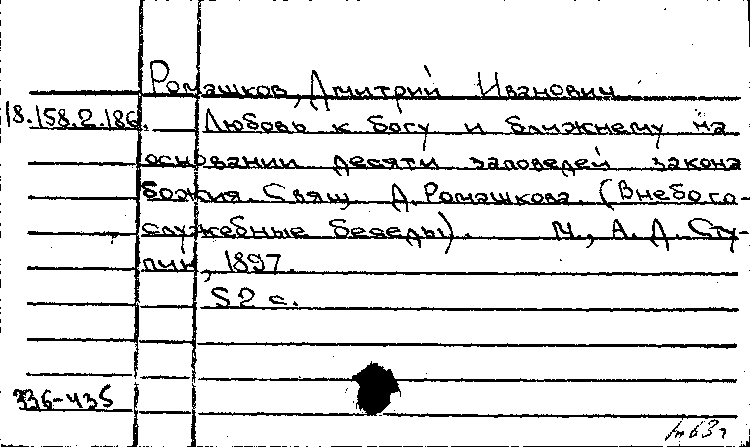 Ромашков, Дмитрий Иванович
18.158.2.186. Любовь к богу и ближнему на
основании десяти заповедей закона
божия. Свящ. Д. Ромашкова. (Внебого-
служебные беседы). М., А. Д. Сту-
пин, 1897.
52 с.
336-435